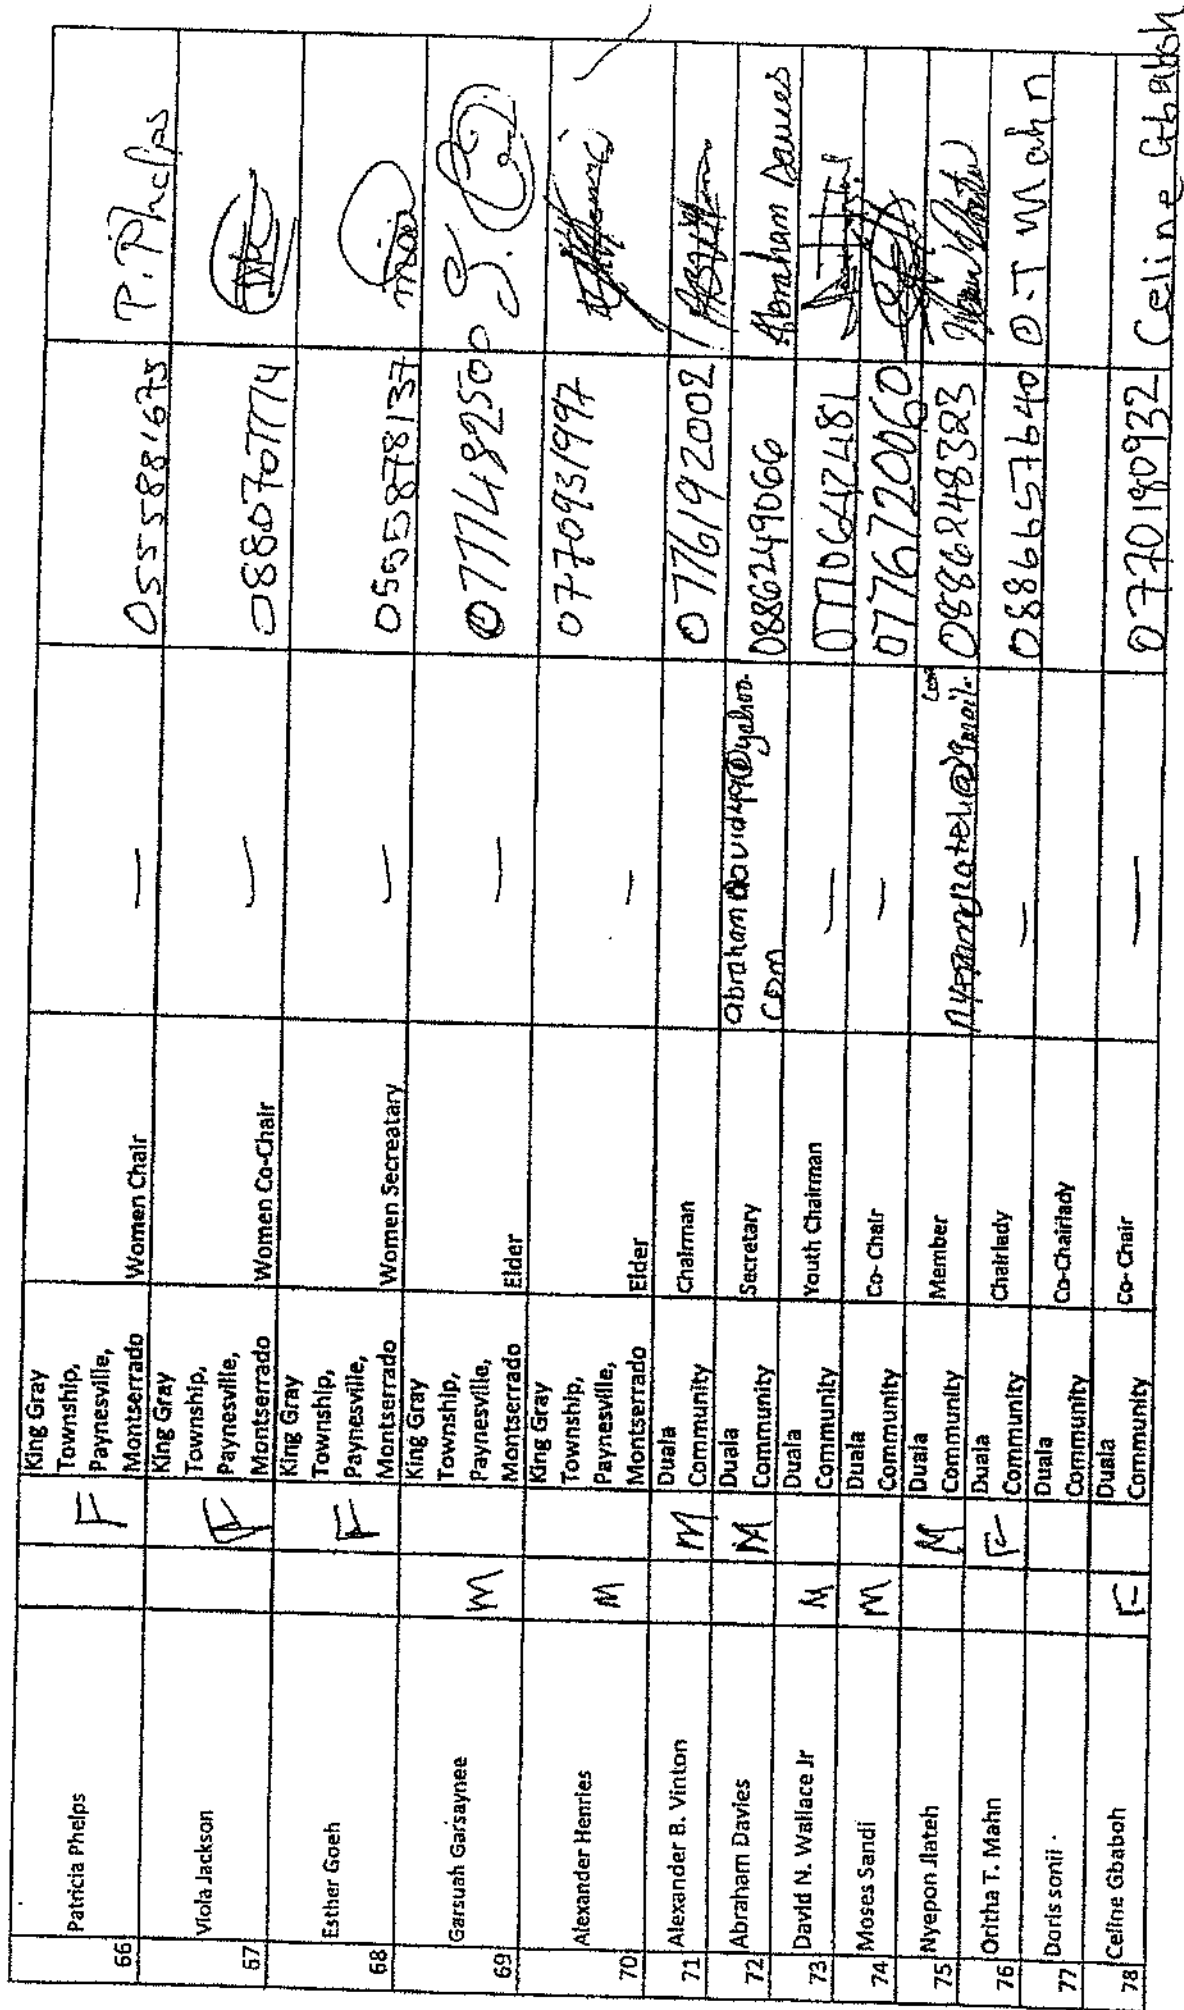 66 Patricia Phelps F King Gray Township, Paynesville, Montserrado Women Chair — 0555881675 P. Phelps
67 Viola Jackson F King Gray Township, Paynesville, Montserrado Women Co-Chair — 0880707774
68 Esther Goeh F King Gray Township, Paynesville, Montserrado Women Secreatary — 0555878137
69 Garsuah Garsaynee M King Gray Township, Paynesville, Montserrado Elder — 0777482500
70 Alexander Henries M King Gray Township, Paynesville, Montserrado Elder - 0770931997
71 Alexander B. Vinton M Duala Community Chairman 0776192002
72 Abraham Davies M Duala Community Secretary 0886249066 Abraham Davies
73 David N. Wallace Jr M Duala Community Youth Chairman — 0770642481
74 Moses Sandi M Duala Community Co- Chair — 0776720060
75 Nyepon Jlateh M Duala Community Member 0886248323
76 Oritha T. Mahn F Duala Community Chairlady — 0886657640 O.T Mahn
77 Doris sonii . Duala Community Co-Chairlady
78 Celine Gbaboh F Duala Community Co- Chair — 0770180932 Celine Gbaboh